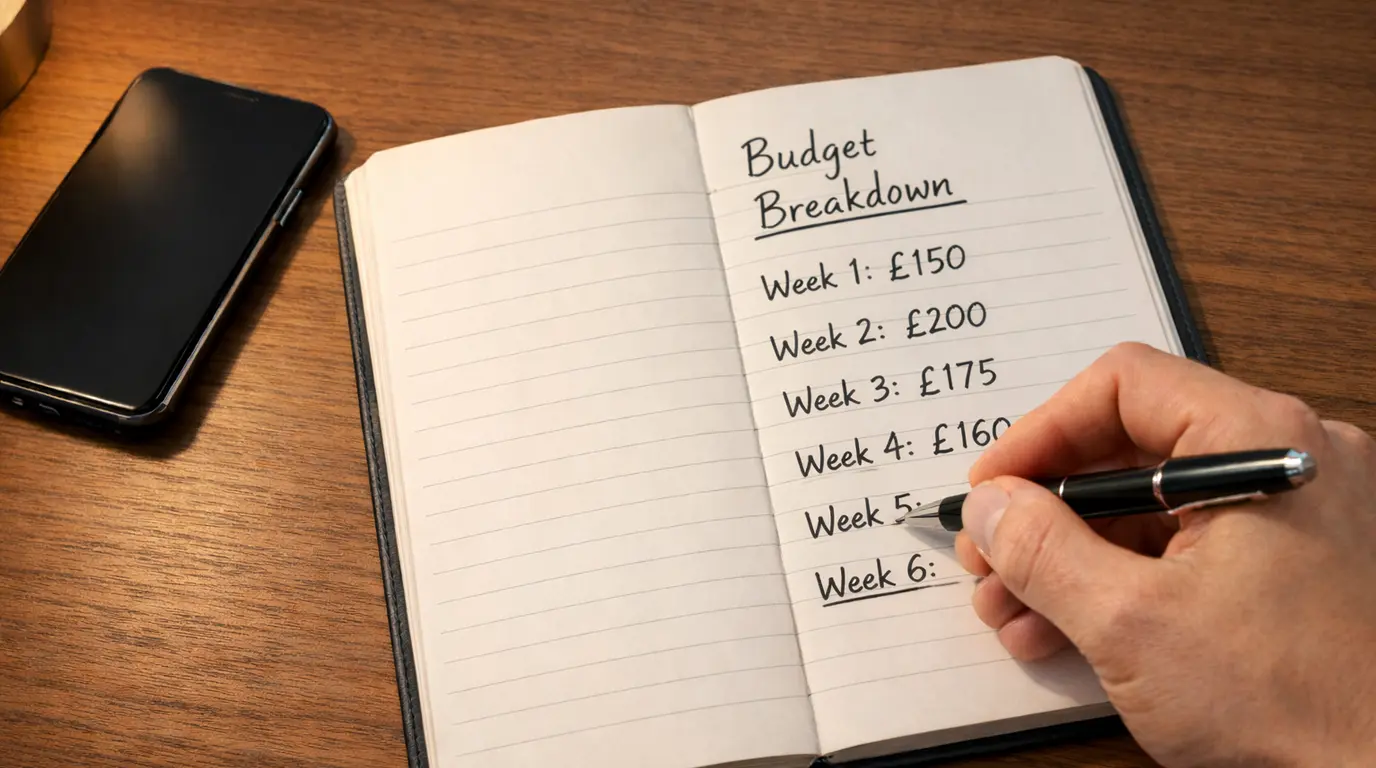 Budget
Breakdown
Week 1: £150
Week 2: £200
Week 3: £175
Week 4: £160
Week 5:
Week 6: